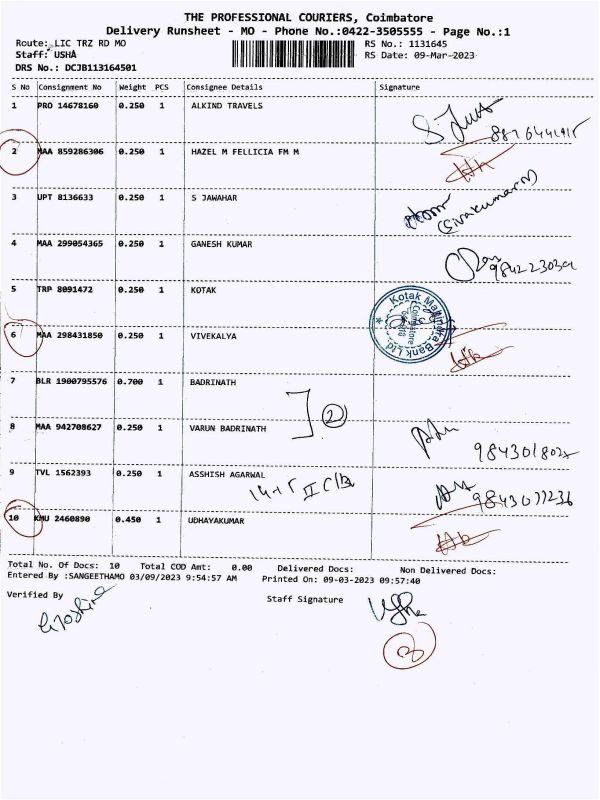 THE PROFESSIONAL COURIERS, Coimbatore
Delivery Runsheet - MO - Phone No.:0422-3505555 - Page No.:1
Route: LIC TRZ RD MO RS No.: 1131645
Staff: USHA RS Date: 09-Mar-2023
DRS No.: DCJB113164501
S No Consignment No Weight PCS Consignee Details Signature
1 PRO 14678160 0.250 1 ALKIND TRAVELS
2 MAA 859286306 0.250 1 HAZEL M FELLICIA FM M
3 UPT 8136633 0.250 1 S JAWAHAR
(Sivakumar N)
4 MAA 299054365 0.250 1 GANESH KUMAR
5 TRP 8091472 0.250 1 KOTAK
Kotak Mahindra Bank Ltd.
Coimbatore
6 MAA 298431850 0.250 1 VIVEKALYA
7 BLR 1900795576 0.700 1 BADRINATH
2
8 MAA 942708627 0.250 1 VARUN BADRINATH
9 TVL 1562393 0.250 1 ASSHISH AGARWAL
10 KMU 2460890 0.450 1 UDHAYAKUMAR
Total No. Of Docs: 10 Total COD Amt: 0.00 Delivered Docs: Non Delivered Docs:
Entered By :SANGEETHAMO 03/09/2023 9:54:57 AM Printed On: 09-03-2023 09:57:40
Verified By Staff Signature
Usha
3